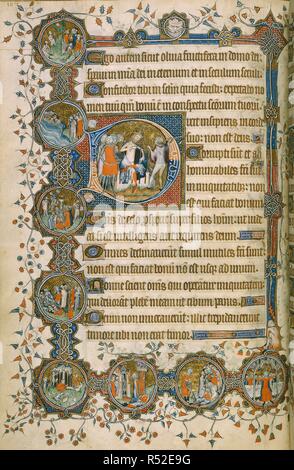 Ego autem sicut oliua fructifera in domo dei
in eternum et in seculum seculi
Confitebor tibi in seculum quia fecisti: et expectabo
tuum quoniam bonum est in conspectu sanctorum tuorum
insipiens in corde
suo: non est deus
Corrupti sunt et
abominabiles facti sunt
in iniquitatibus
non est qui faciat bonum
Deus de celo prospexit super filios hominum: ut
si est intelligens aut requirens deum
Omnes declinauerunt simul inutiles facti sunt:
non est qui faciat bonum non est usque ad unum
Nonne scient omnes qui operantur iniquitatem
qui deuorant plebem meam ut cibum panis
Deum non inuocauerunt: illic trepidauerunt
timore ubi non erat timor
alamy
Image ID: R52E9G
www.alamy.com